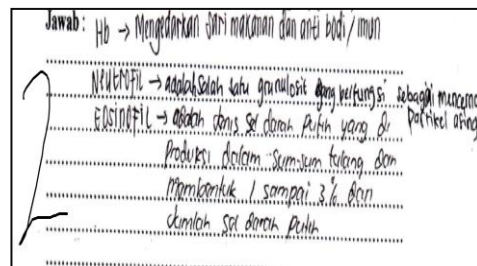 Jawab: Hb → Mengedarkan sari makanan dan anti bodi / imun
Neutrofil → adalah salah satu granulosit yang berfungsi sebagai mencerna
partikel asing
Eosinofil → adalah jenis sel darah putih yang di
produksi dalam sum-sum tulang dan
membentuk 1 sampai 3% dari
Jumlah sel darah putih
2